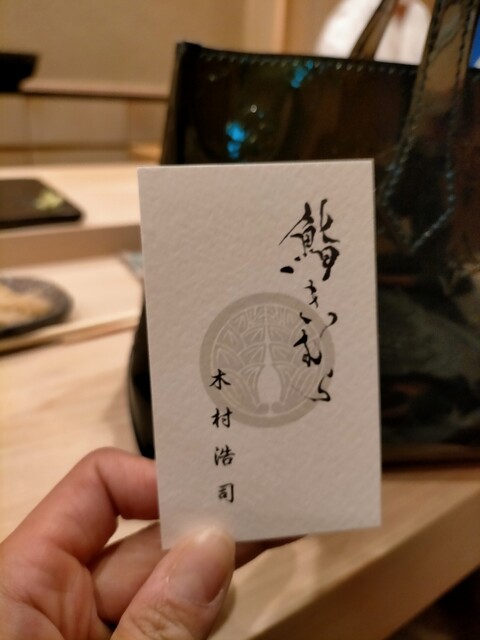 鮨きむら
木村浩司